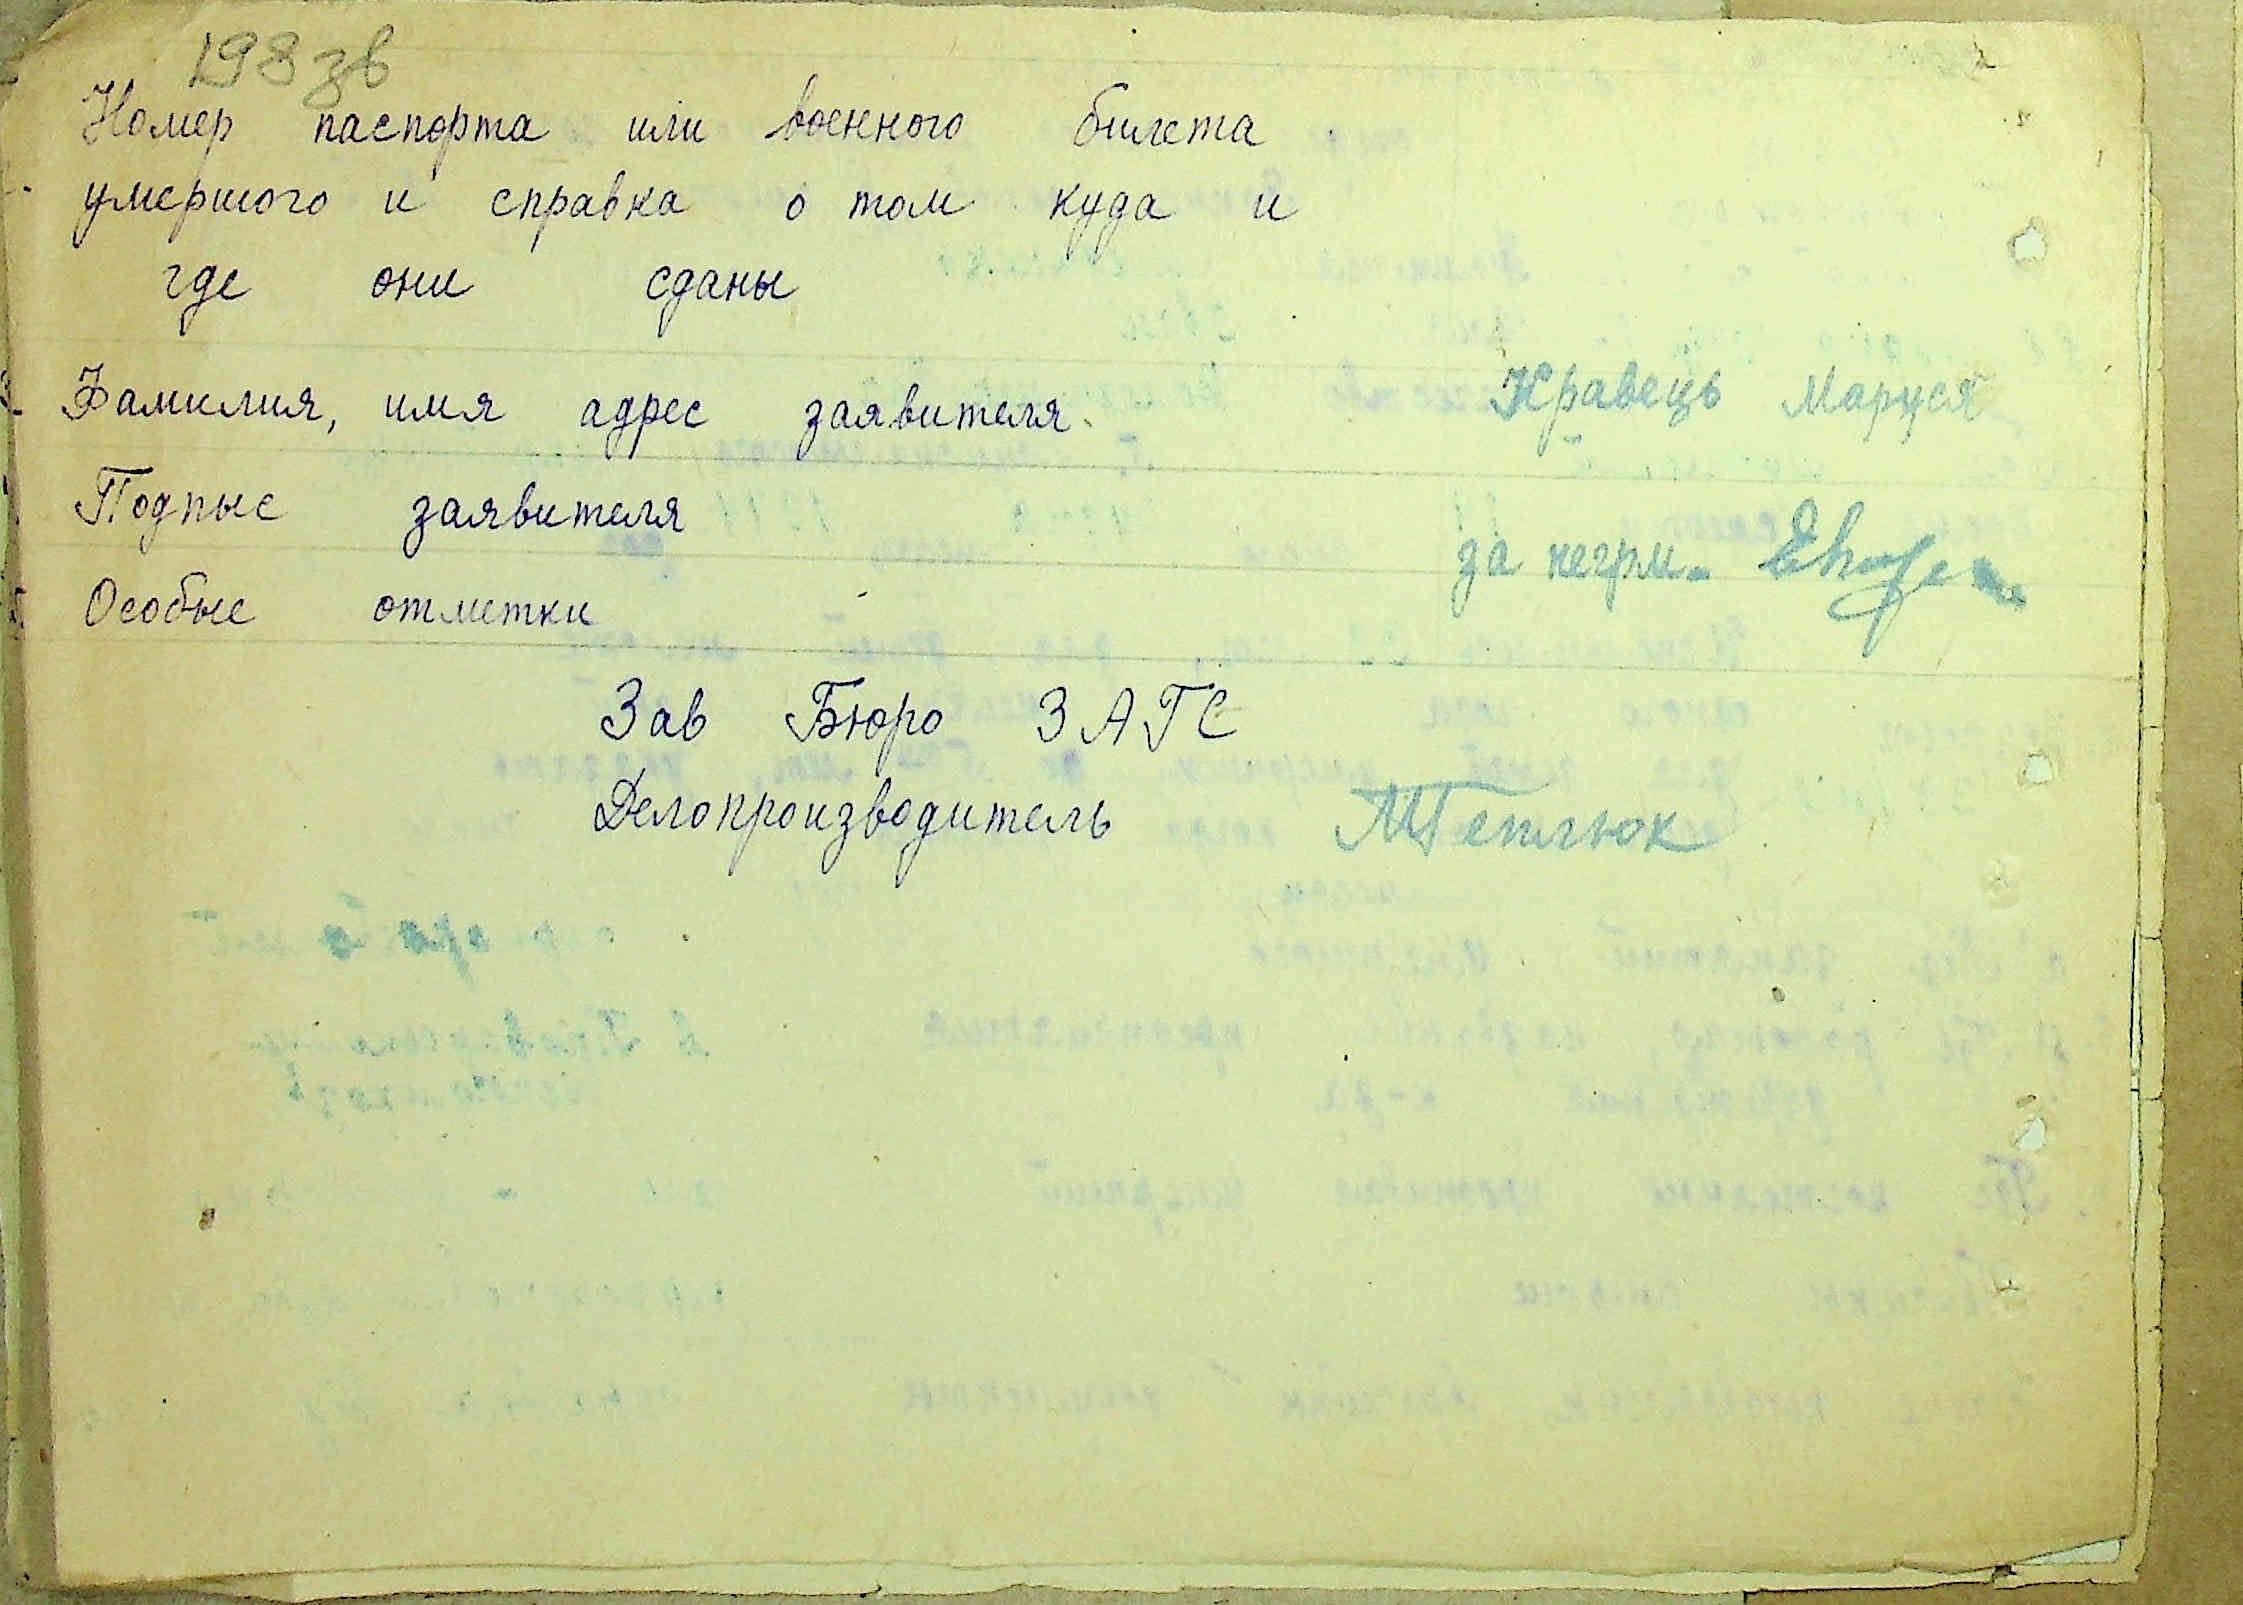 198 зв
Номер паспорта или военного билета
умершого и справка о том куда и
где они сданы
Фамилия, имя адрес заявителя Кравець Маруся
Подпыс заявителя за негрм.
Особые отметки
Зав Бюро ЗАГС
Делопроизводитель МТеплюк